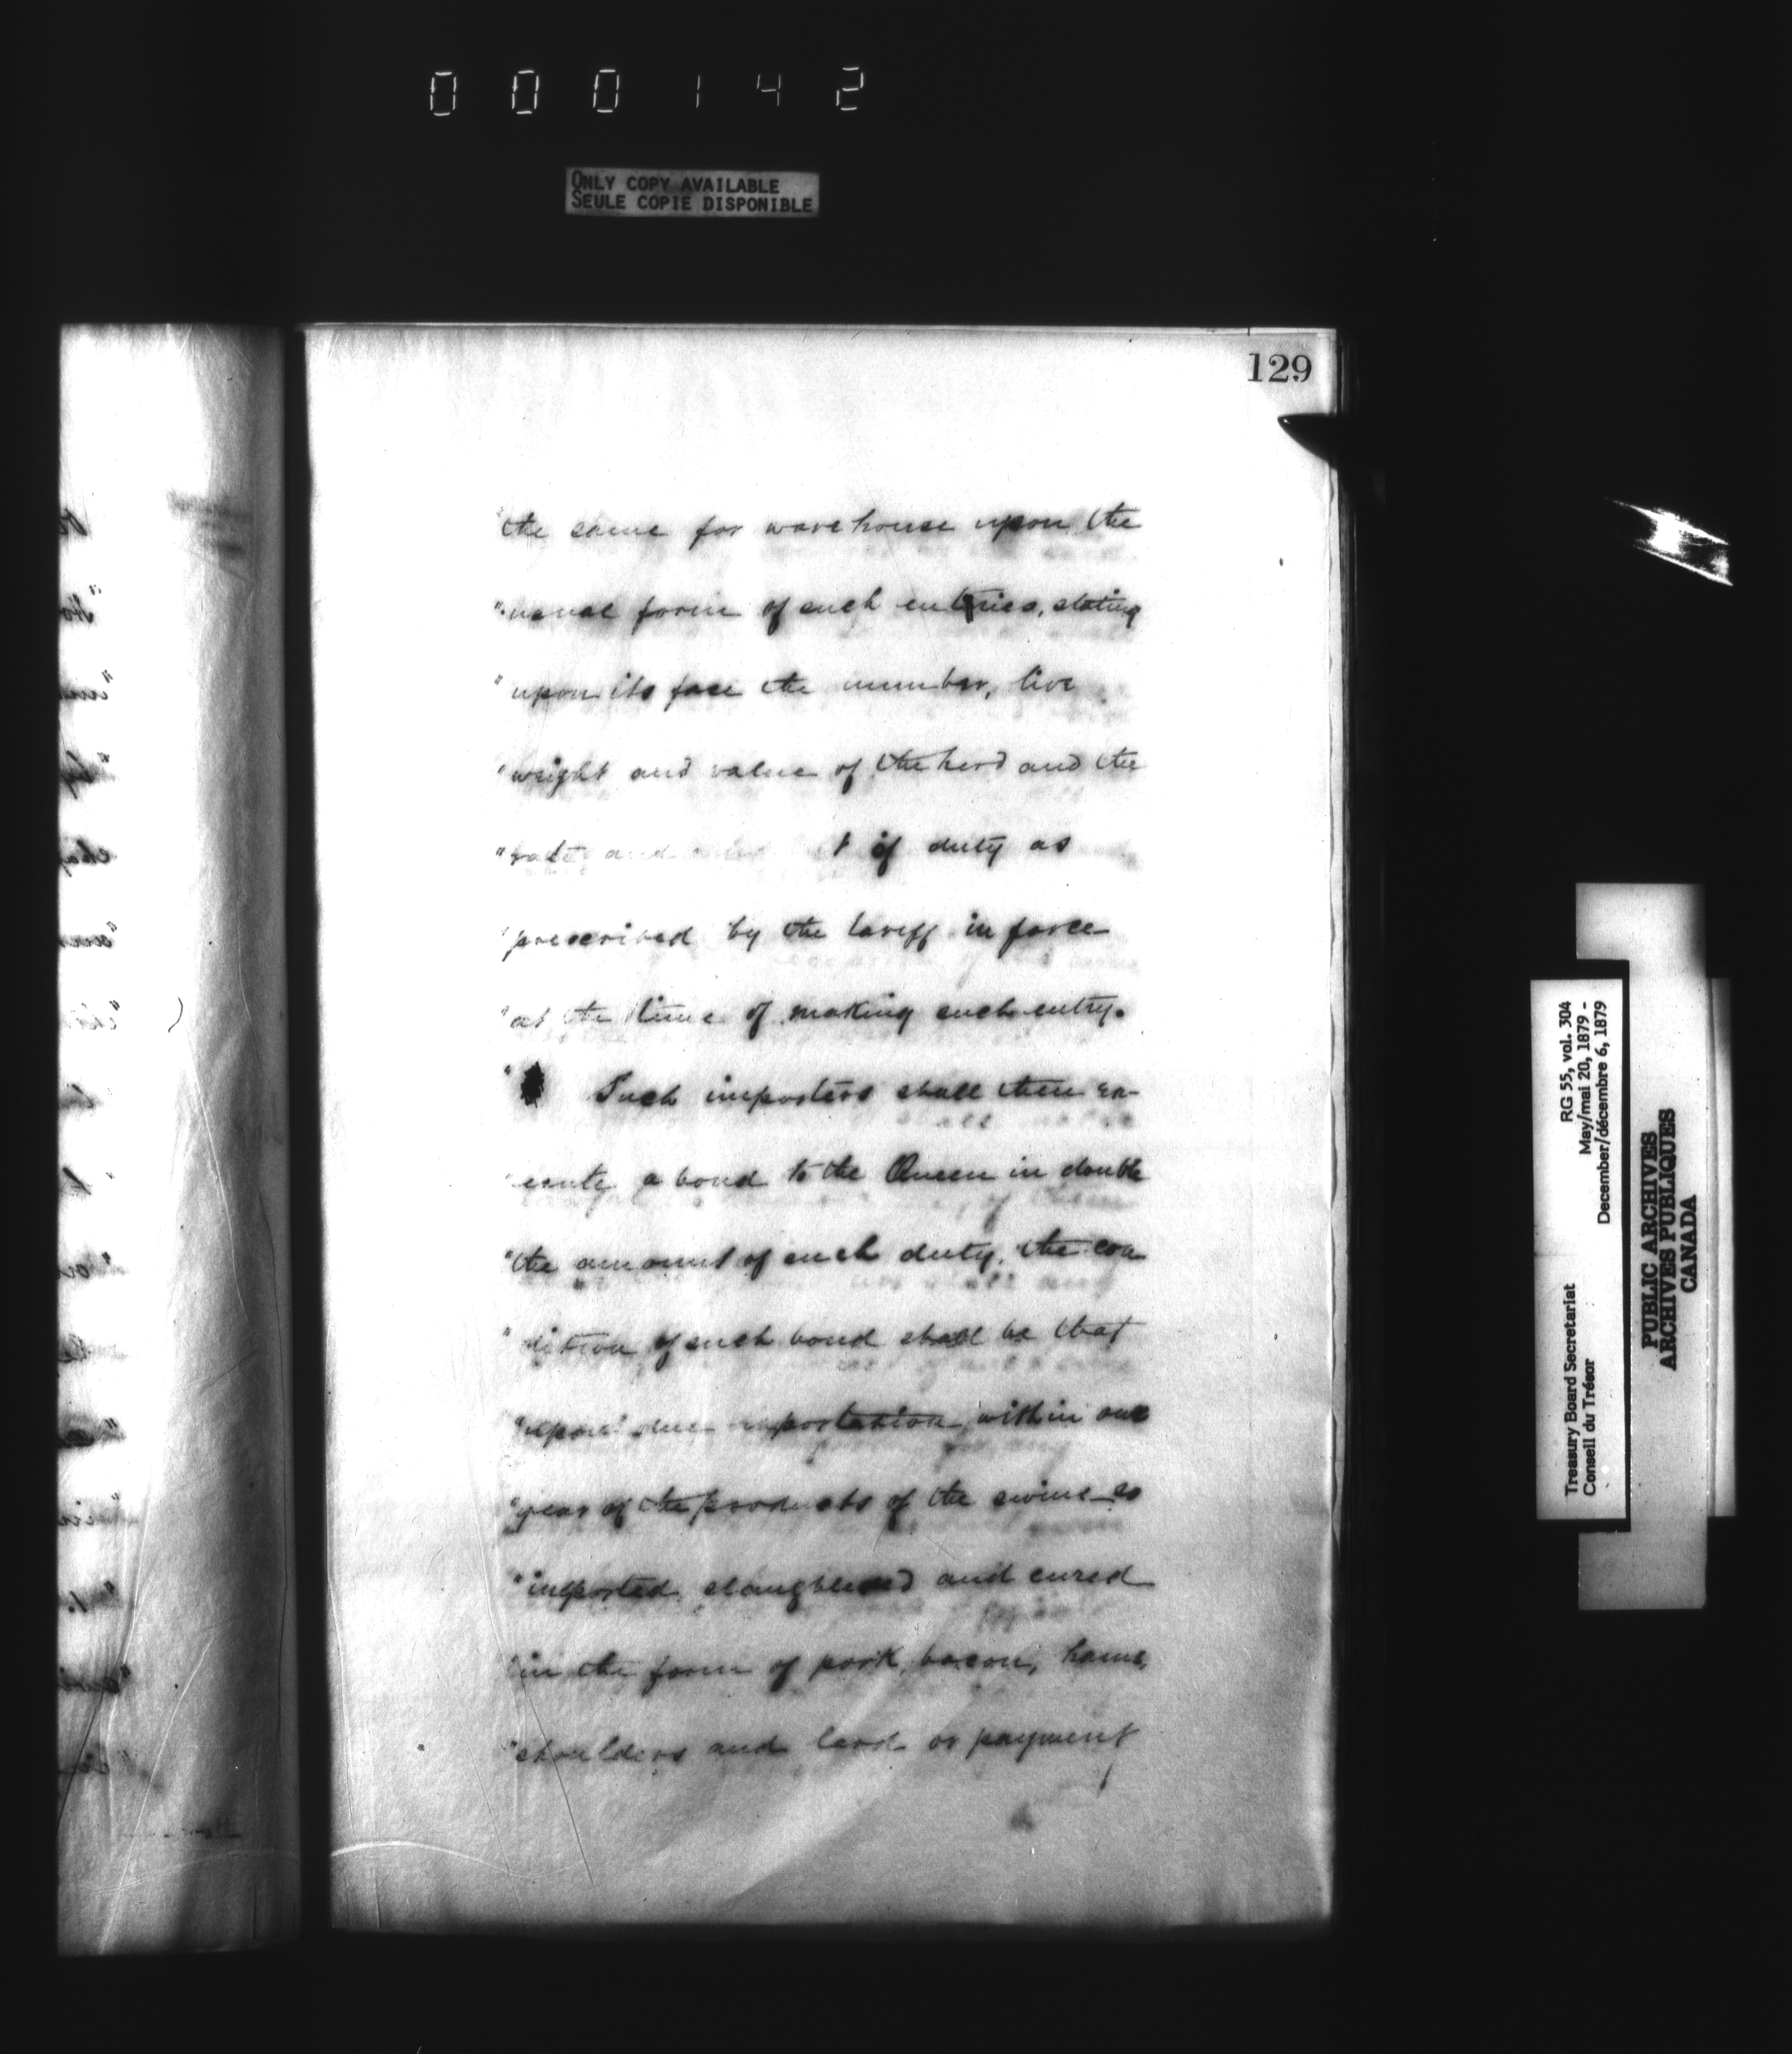 000142
ONLY COPY AVAILABLE
SEULE COPIE DISPONIBLE
129
"the same for warehouse upon the
"usual form of such entries, stating
"upon its face the number, live
"weight and value of the herd and the
"rate and of duty as
"prescribed by the tariff in force
"at the time of making such entry.
" Such importers shall then ex-
"ecute a bond to the Queen in double
"the amount of such duty, the con
"dition of such bond shall be that
"upon due within one
"year of the products of the swine so
"imported slaughtered and cured
"in the form of pork, bacon, hams,
"shoulders and lard or payment
RG 55, vol. 304
May/mai 20, 1879 -
December/décembre 6, 1879
Treasury Board Secretariat
Conseil du Trésor
PUBLIC ARCHIVES
ARCHIVES PUBLIQUES
CANADA